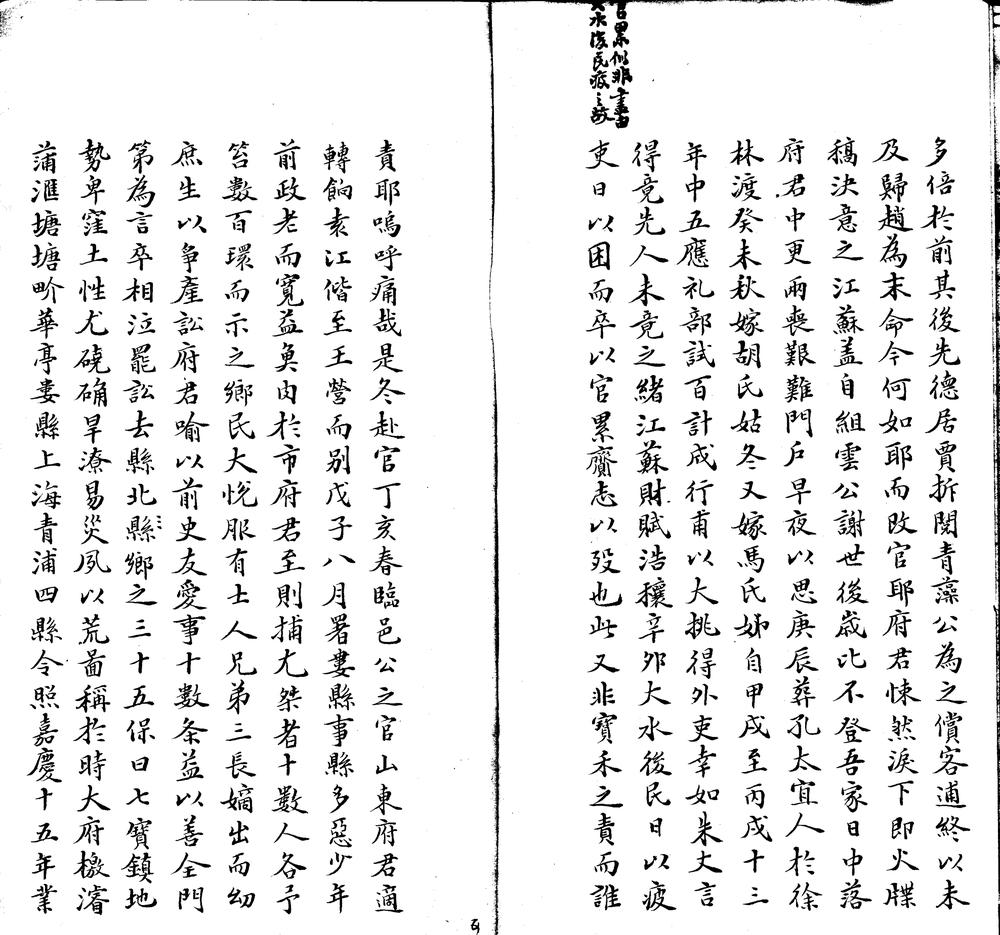 多倍於前其後先德居賈拆閱青藻公為之償客逋終以未
及歸趙為末命今何如耶而改官耶府君悚然淚下即火牒
稿決意之江蘇盖自組雲公謝世後歲比不登吾家日中落
府君中更兩喪艱難門戶早夜以思庚辰葬孔太宜人於徐
林渡癸未秋嫁胡氏姑冬又嫁馬氏姊自甲戌至丙戌十三
年中五應礼部試百計成行甫以大挑得外吏幸如朱丈言
得竟先人未竟之緒江蘇財賦浩穰辛卯大水後民日以疲
吏日以困而卒以官累齎志以歿也此又非寶禾之責而誰
官累似非盡由
大水後民疲之故
責耶嗚呼痛哉是冬赴官丁亥春臨邑公之官山東府君適
轉餉袁江偕至王營而别戊子八月署婁縣事縣多惡少年
前政老而寬益魚肉於市府君至則捕尤桀者十數人各予
笞數百環而示之鄉民大悅服有士人兄弟三長嫡出而幼
庶生以争產訟府君喻以前史友愛事十數条益以善全門
第為言卒相泣罷訟去縣北縣鄉之三十五保曰七寶鎮地
勢卑窪土性尤磽确旱潦易災夙以荒啚稱於時大府檄濬
蒲滙塘塘畍華亭婁縣上海青浦四縣令照嘉慶十五年業